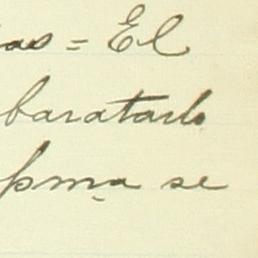 as = El
baratarlo
pma se